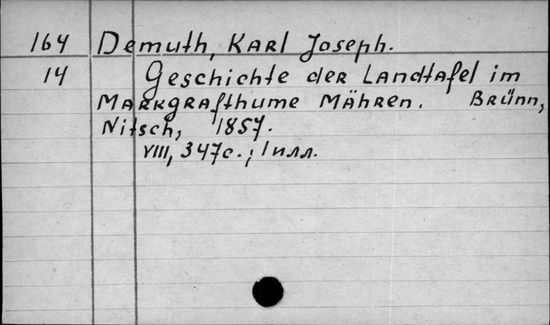 164 Demuth, Karl Joseph.
14 Geschichte der Landtafel im
Markgrafthume Mähren. Brünn,
Nitsch, 1857.
VIII, 347c.; 1 илл.